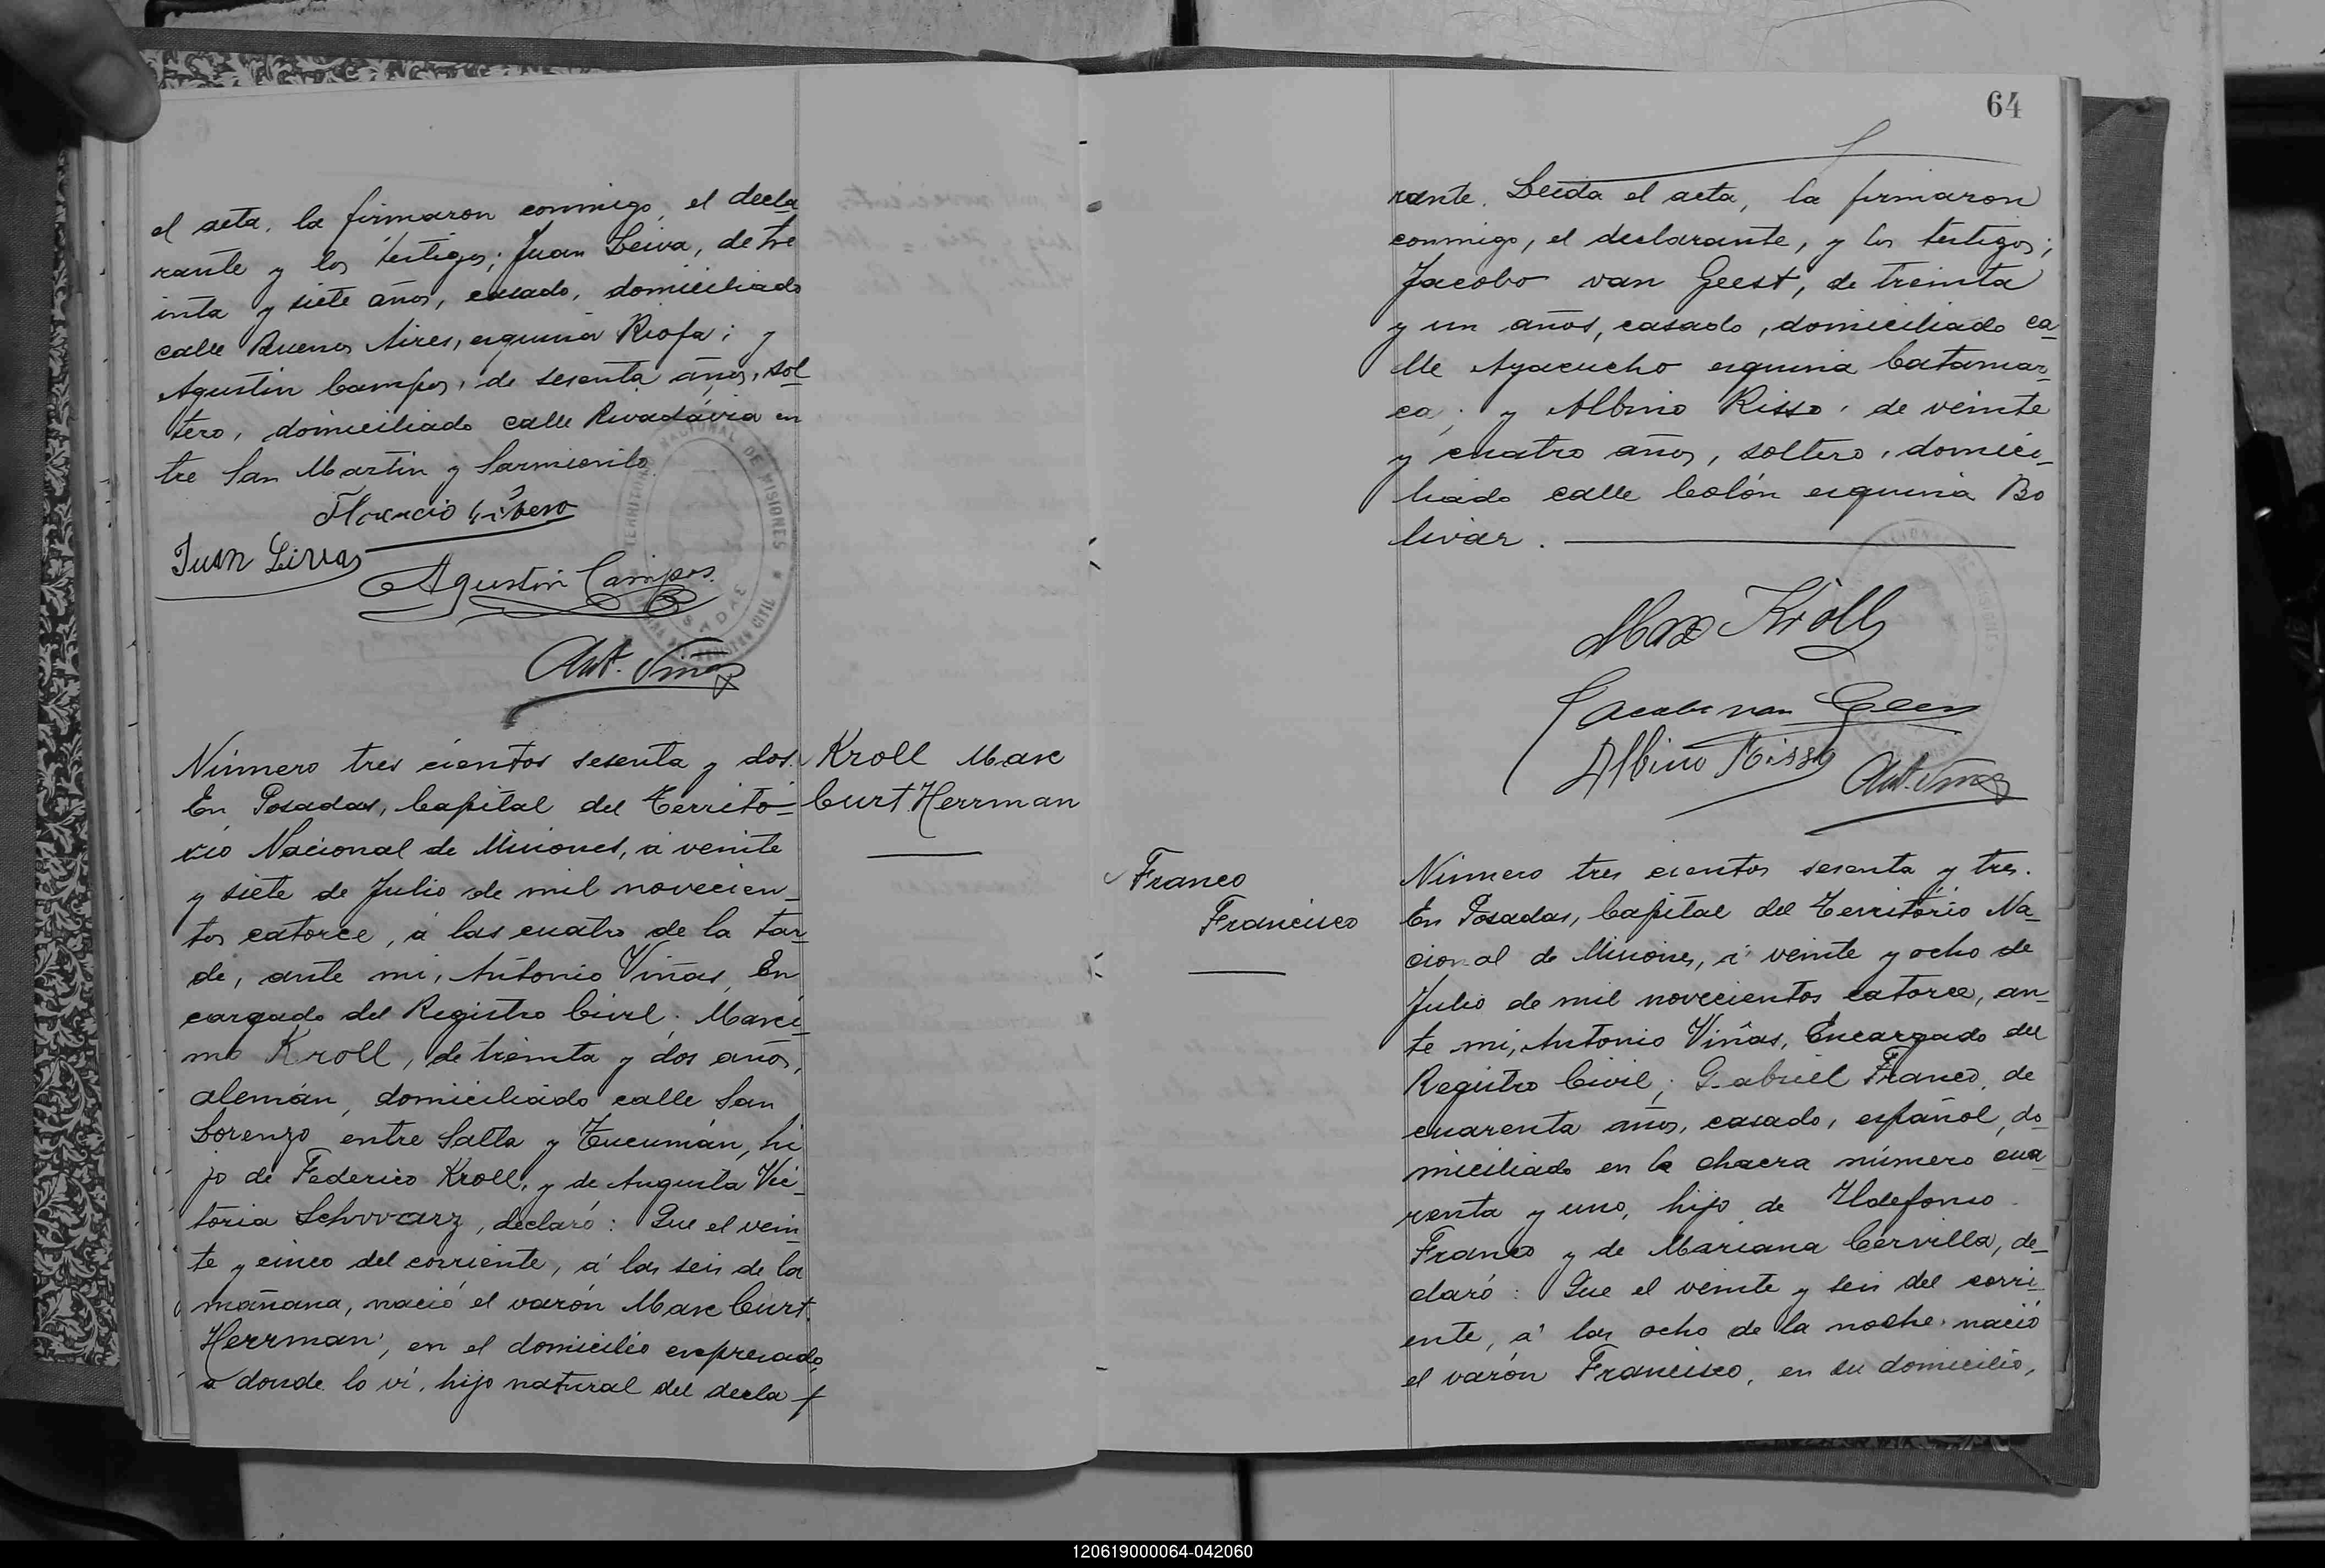 el acta, la firmaron conmigo, el decla
rante y los testigos; Juan Leiva, de tre
inta y siete años, casado, domiciliado
calle Buenos Aires, esquina Rioja; y
Agustin Campos, de sesenta años, sol
tero, domiciliado calle Rivadávia en
tre San Martin y Sarmiento
Juan Leivas
Agustin Campos
Ant. Viñas
TERRITORIO NACIONAL DE MISIONES
POSADAS
Número tres cientos sesenta y dos.
En Posadas, Capital del Territo-
rio Nacional de Misiones, á veinte
y siete de Julio de mil novecien-
tos catorce, á las cuatro de la tar-
de, ante mi, Antonio Viñas, En
cargado del Registro Civil; Maxi-
mo Kroll, de treinta y dos años,
alemán, domiciliado calle San
Lorenzo entre Salta y Tucumán, hi
jo de Federico Kroll, y de Augusta Vic-
toria Schwarz, declaró: Que el vein-
te y cinco del corriente, á las seis de la
mañana, nació el varón Max Curt
Herrman, en el domicilio expresado,
a donde lo ví, hijo natural del decla
Kroll Max
Curt Herrman
64
rante. Leida el acta, la firmaron
conmigo, el declarante, y los testigos;
Jacobo van Geest, de treinta
y un años, casado, domiciliado ca-
lle Ayacucho esquina Catamar-
ca; y Albino Risso, de veinte
y cuatro años, soltero, domici-
liado calle Colón esquina Bo
livar.
Max Kroll
Jacobo van Geest
Albino Risso
Ant. Viñas
Franco
Francisco
Número tres cientos sesenta y tres.
En Posadas, Capital del Territorio Na-
cional de Misiones, á veinte y ocho de
Julio de mil novecientos catorce, an-
te mi, Antonio Viñas, Encargado del
Registro Civil; Gabriel Franco, de
cuarenta años, casado, español, do-
miciliado en la chacra número cua
renta y uno, hijo de Ildefonso
Franco y de Mariana Cervilla, de-
claró: Que el veinte y seis del corri-
ente, á las ocho de la noche, nació
el varón Francisco, en su domicilio,
120619000064-042060